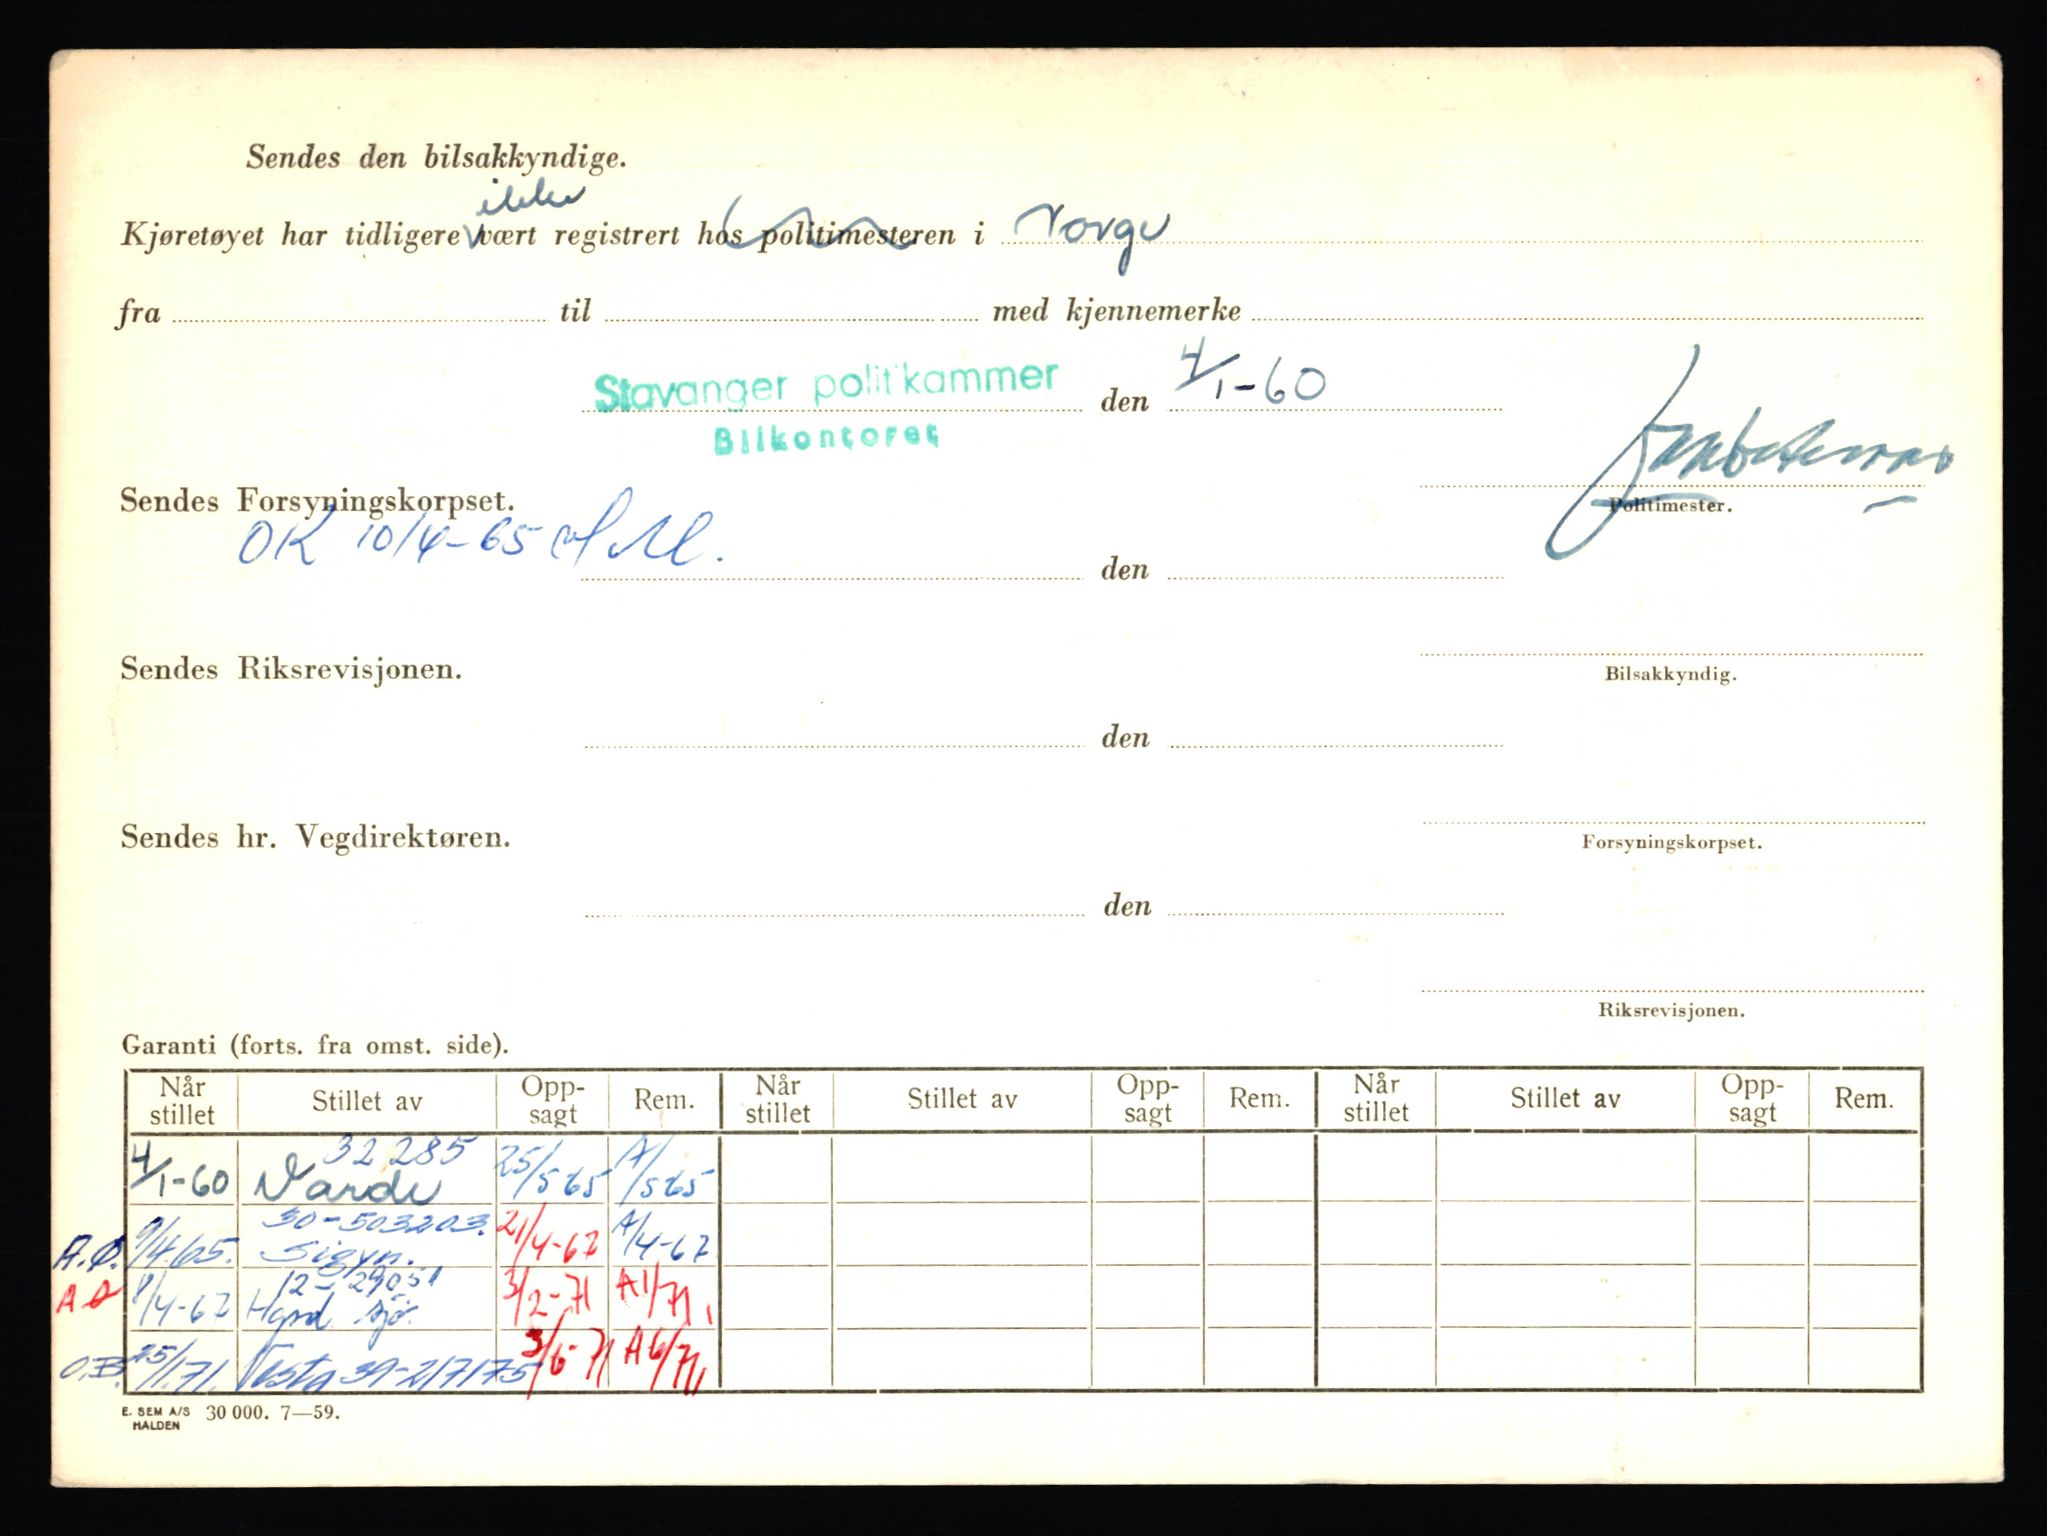 Sendes den bilsakkyndige.
ikke
Kjøretøyet har tidligere vært registrert hos politimesteren i Norge
fra til med kjennemerke
Stavanger politikammer den 4/1-60
Bilkontoret
Sendes Forsyningskorpset.
Politimester.
OK 10/4-65
den
Sendes Riksrevisjonen.
Bilsakkyndig.
den
Sendes hr. Vegdirektøren.
Forsyningskorpset.
den
Riksrevisjonen.
Garanti (forts. fra omst. side).
Når stillet Stillet av Opp-sagt Rem. Når stillet Stillet av Opp-sagt Rem. Når stillet Stillet av Opp-sagt Rem.
32285
4/1-60 Varde 25/5 65 A/5 65
30-503203.
A.Ø. 9/4/65. Sigyn. 21/4-67 A/4-67
12-29051
1/4-67 Hand sjø. 3/2-71 A1/71
O.B. 25/1.71. Vesta 39-217175 3/6-71 A6/71
E. SEM A/S HALDEN 30 000. 7—59.